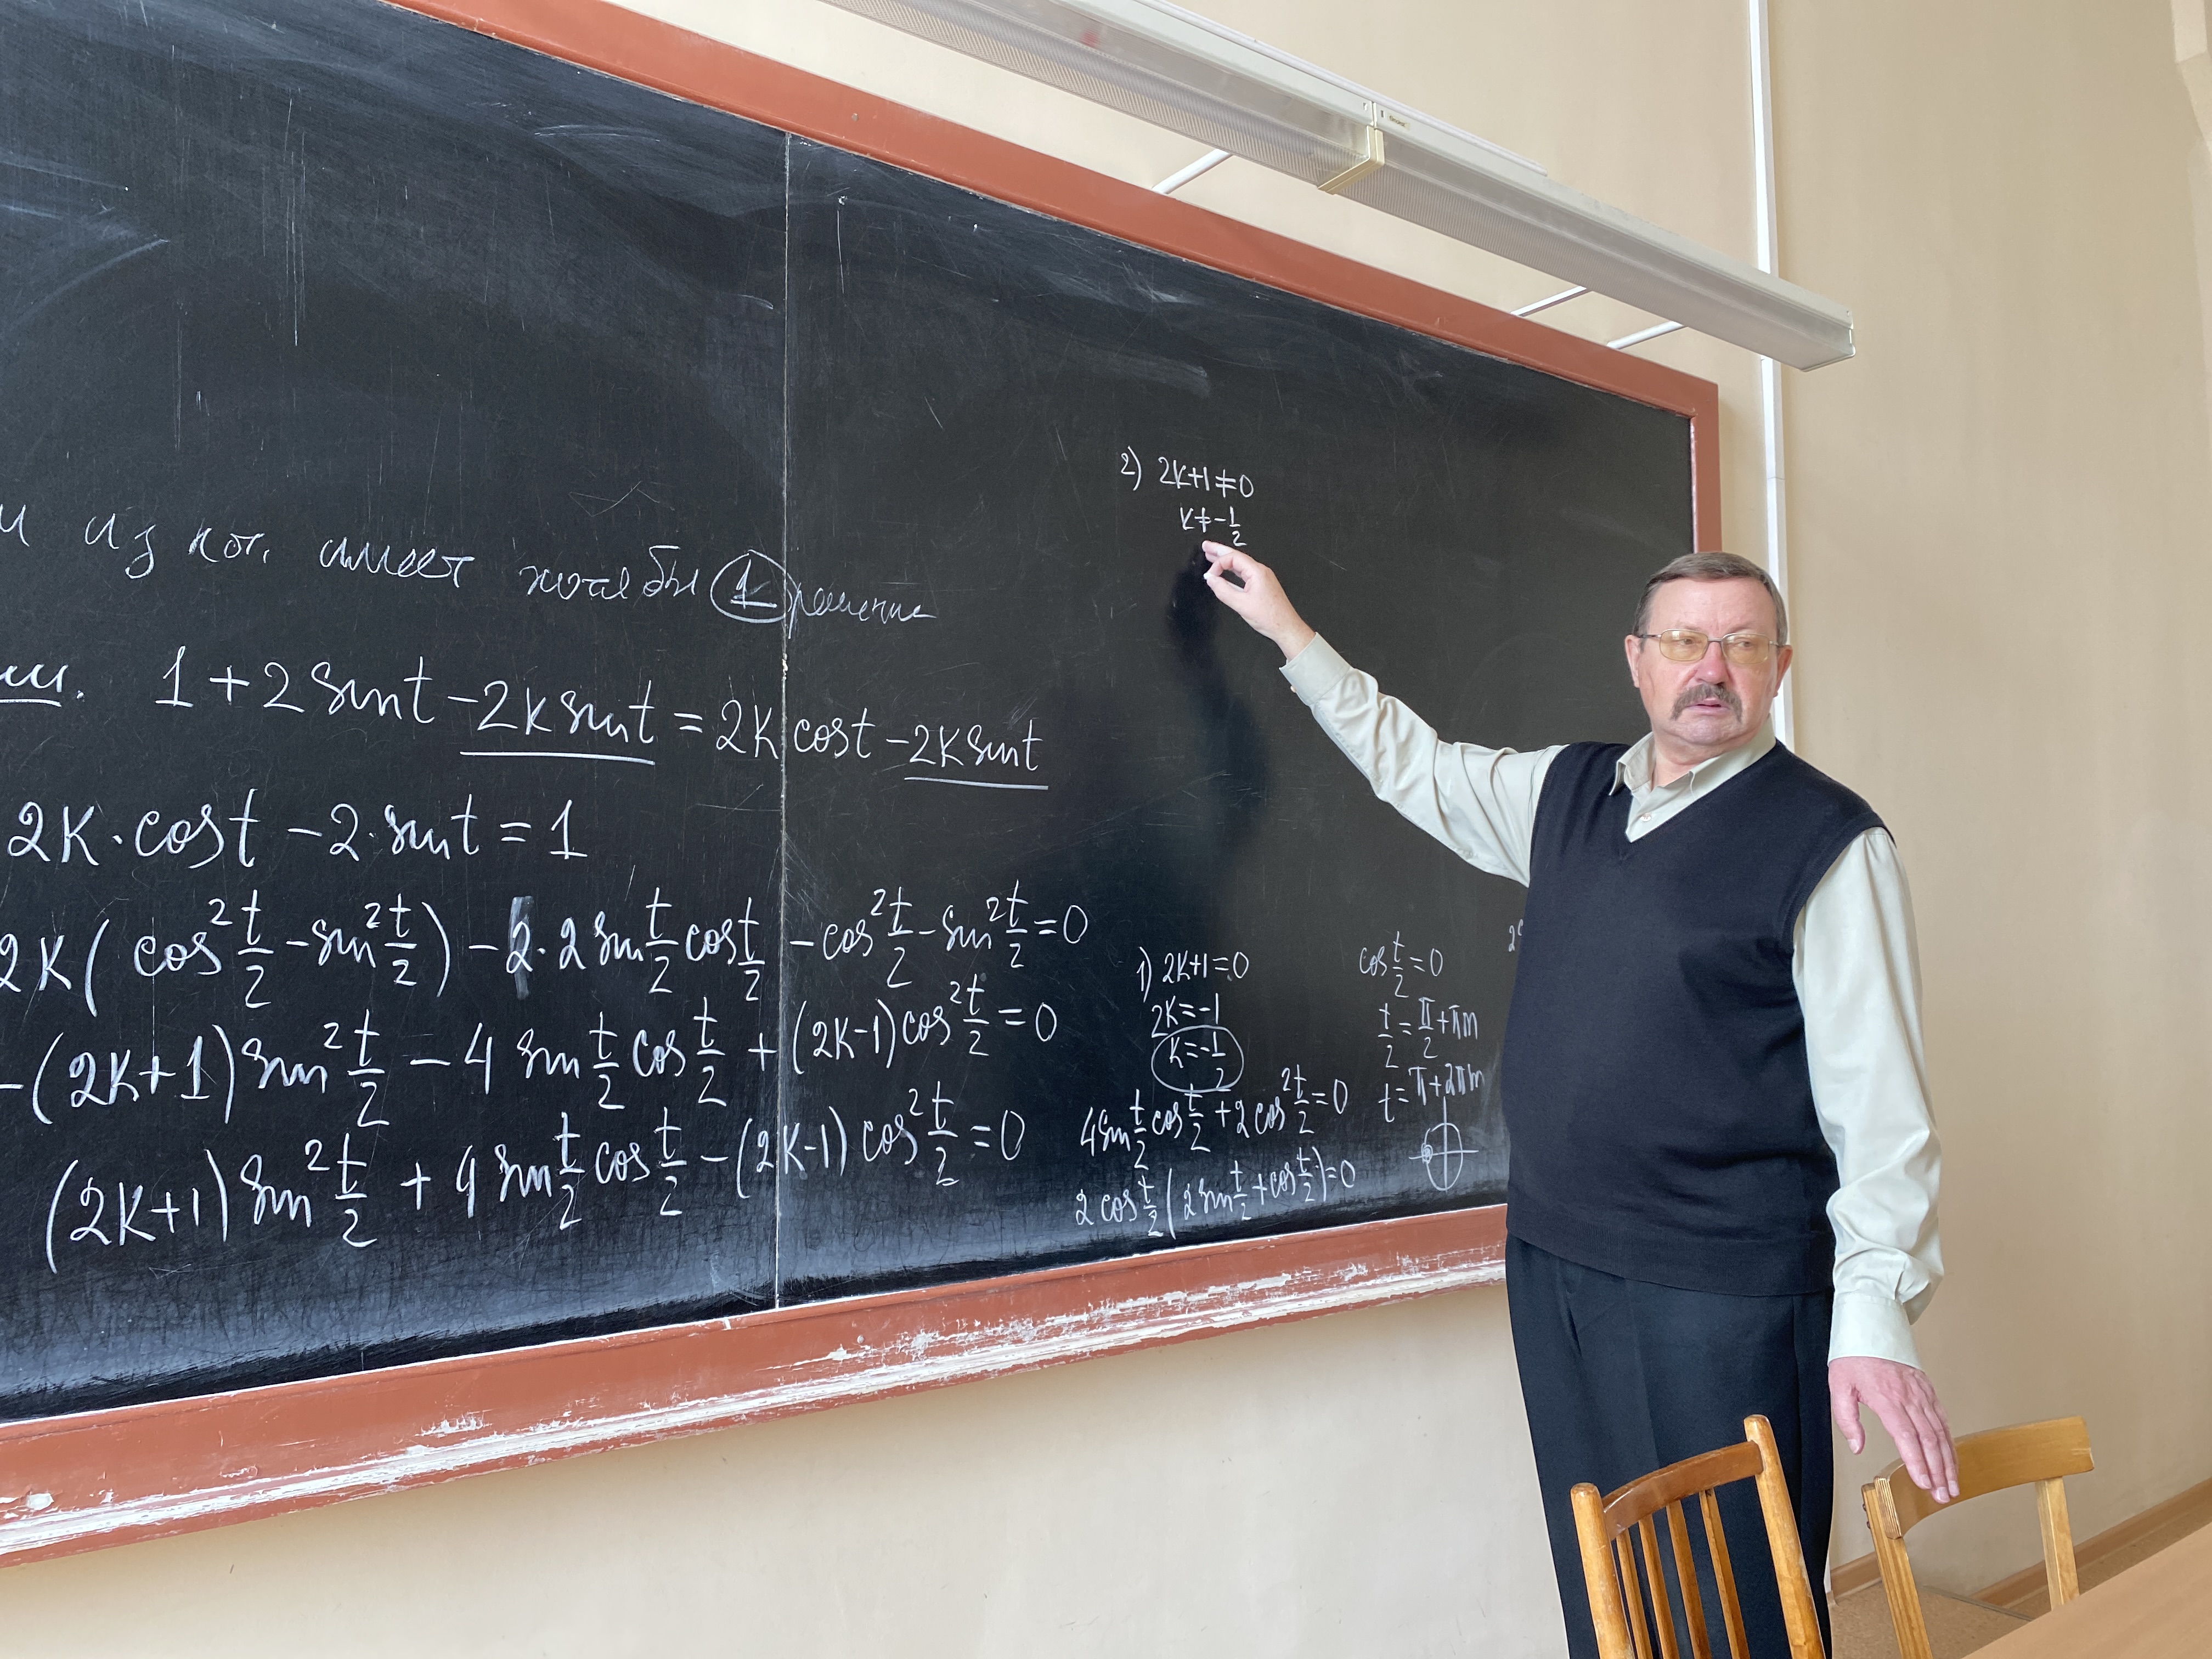 из кот. имеет хотя бы 1 решение
1+2sint-2ksint=2kcost-2ksint
2k·cost-2·sint=1
2k(cos²t/2-sin²t/2)-2·2sin t/2 cos t/2-cos²t/2-sin²t/2=0
-(2k+1)sin²t/2-4sin t/2 cos t/2+(2k-1)cos²t/2=0
(2k+1)sin²t/2+4sin t/2 cos t/2-(2k-1)cos²t/2=0
1) 2k+1=0
2k=-1
k=-1/2
4sin t/2 cos t/2+2cos²t/2=0
2cos t/2(2sin t/2+cos t/2)=0
cos t/2=0
t/2=π/2+πm
t=π+2πm
2) 2k+1≠0
k≠-1/2